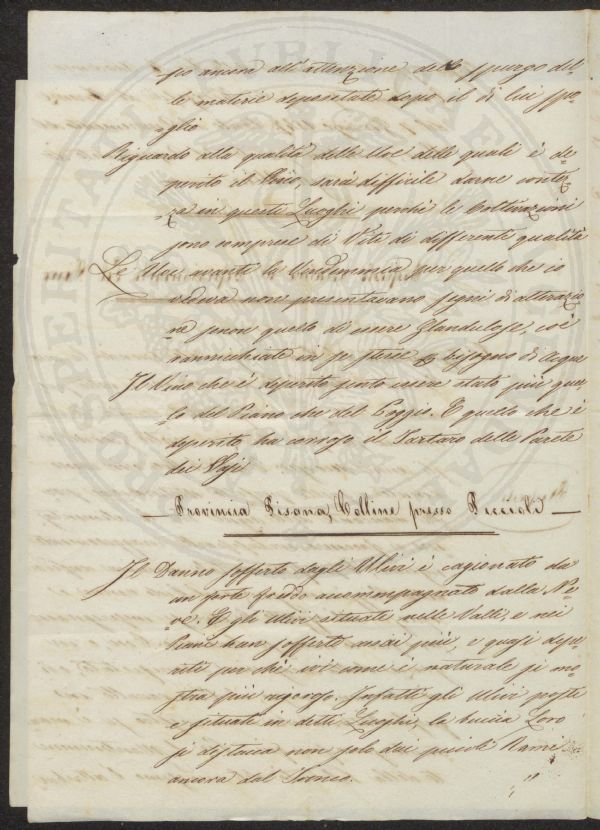 pio ancora all'attenzione dello spurgo del=
le materie depositate dopo il di lui spo=
=glio
Riguardo alla qualità delle Uve delle quali è de=
perito il Vino, sarà difficile darne contez=
=za in questi Luoghi perchè le Coltivazioni
sono comprese di Vite di differenti qualità
Le Uve avanti la Vendemmia per quello che io
vedeva non presentavano segni di alterazio=
ne senon quello di essere Glandulose, cioè
rannicchiate in se stesse bisogno di Acqua
Il Vino che è deperito sento essere stato più que=
lo del Piano che del Poggio. E quello che è
deperito, ha corroso il Tartaro delle Parete
dei Vasi
— Provincia Pisana, Colline presso Peccioli —
Il Danno sofferto dagli Ulivi è cagionato da
un forte freddo accompagnato dalla Ne=
ve. E gli Ulivi situati nelle Valli, e nei
Piani han sofferto assai più, e quasi depe=
riti perchè ivi come è naturale si mo=
stra più rigoroso. Infatti gli Ulivi posti
e situati in detti Luoghi, la buccia Loro
si distacca non solo dai piccoli Rami
ancora dal Tronco.